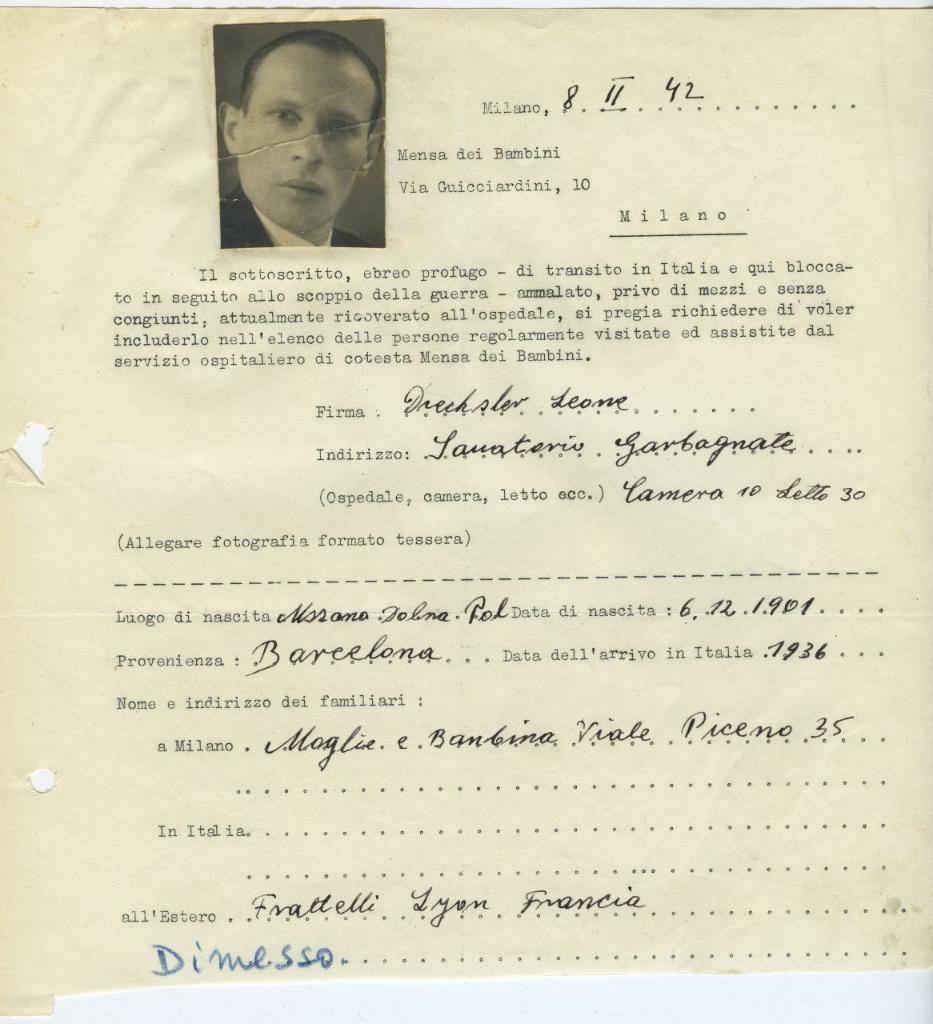 Milano, 8. II 42
Mensa dei Bambini
Via Guicciardini, 10
Milano
Il sottoscritto, ebreo profugo - di transito in Italia e qui blocca-
to in seguito allo scoppio della guerra - ammalato, privo di mezzi e senza
congiunti, attualmente ricoverato all'ospedale, si pregia richiedere di voler
includerlo nell'elenco delle persone regolarmente visitate ed assistite dal
servizio ospitaliero di cotesta Mensa dei Bambini.
Firma : Drechsler Leone
Indirizzo: Sanatorio Garbagnate
(Ospedale, camera, letto ecc.) Camera 10 Letto 30
(Allegare fotografia formato tessera)
Luogo di nascita Mszana Dolna. Pol Data di nascita : 6. 12. 1901
Provenienza : Barcelona Data dell'arrivo in Italia 1936
Nome e indirizzo dei familiari :
a Milano Moglie e Bambina Viale Piceno 35
In Italia
all'Estero Frattelli Lyon Francia
Dimesso